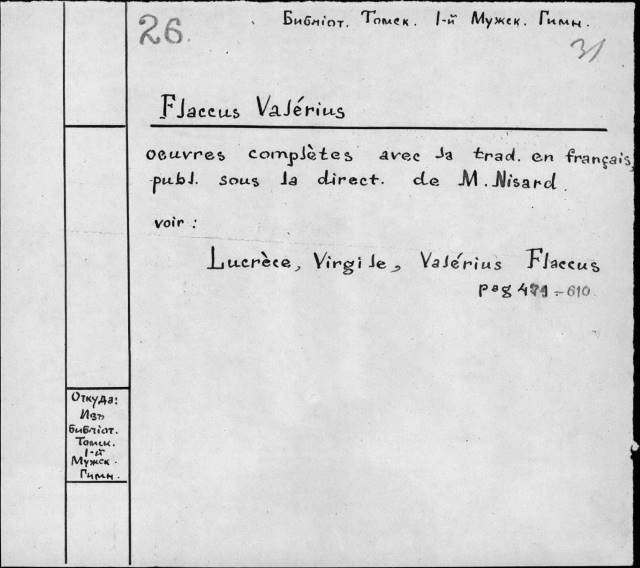 26.
Библіот. Томск. 1-й Мужск. Гимн.
31
Flaccus Valérius
oeuvres complètes avec la trad. en français,
publ. sous la direct. de M. Nisard.
voir:
Lucrèce, Virgile, Valérius Flaccus
pag 471-610
Откуда:
Изъ
Библіот.
Томск.
1-й
Мужск.
Гимн.